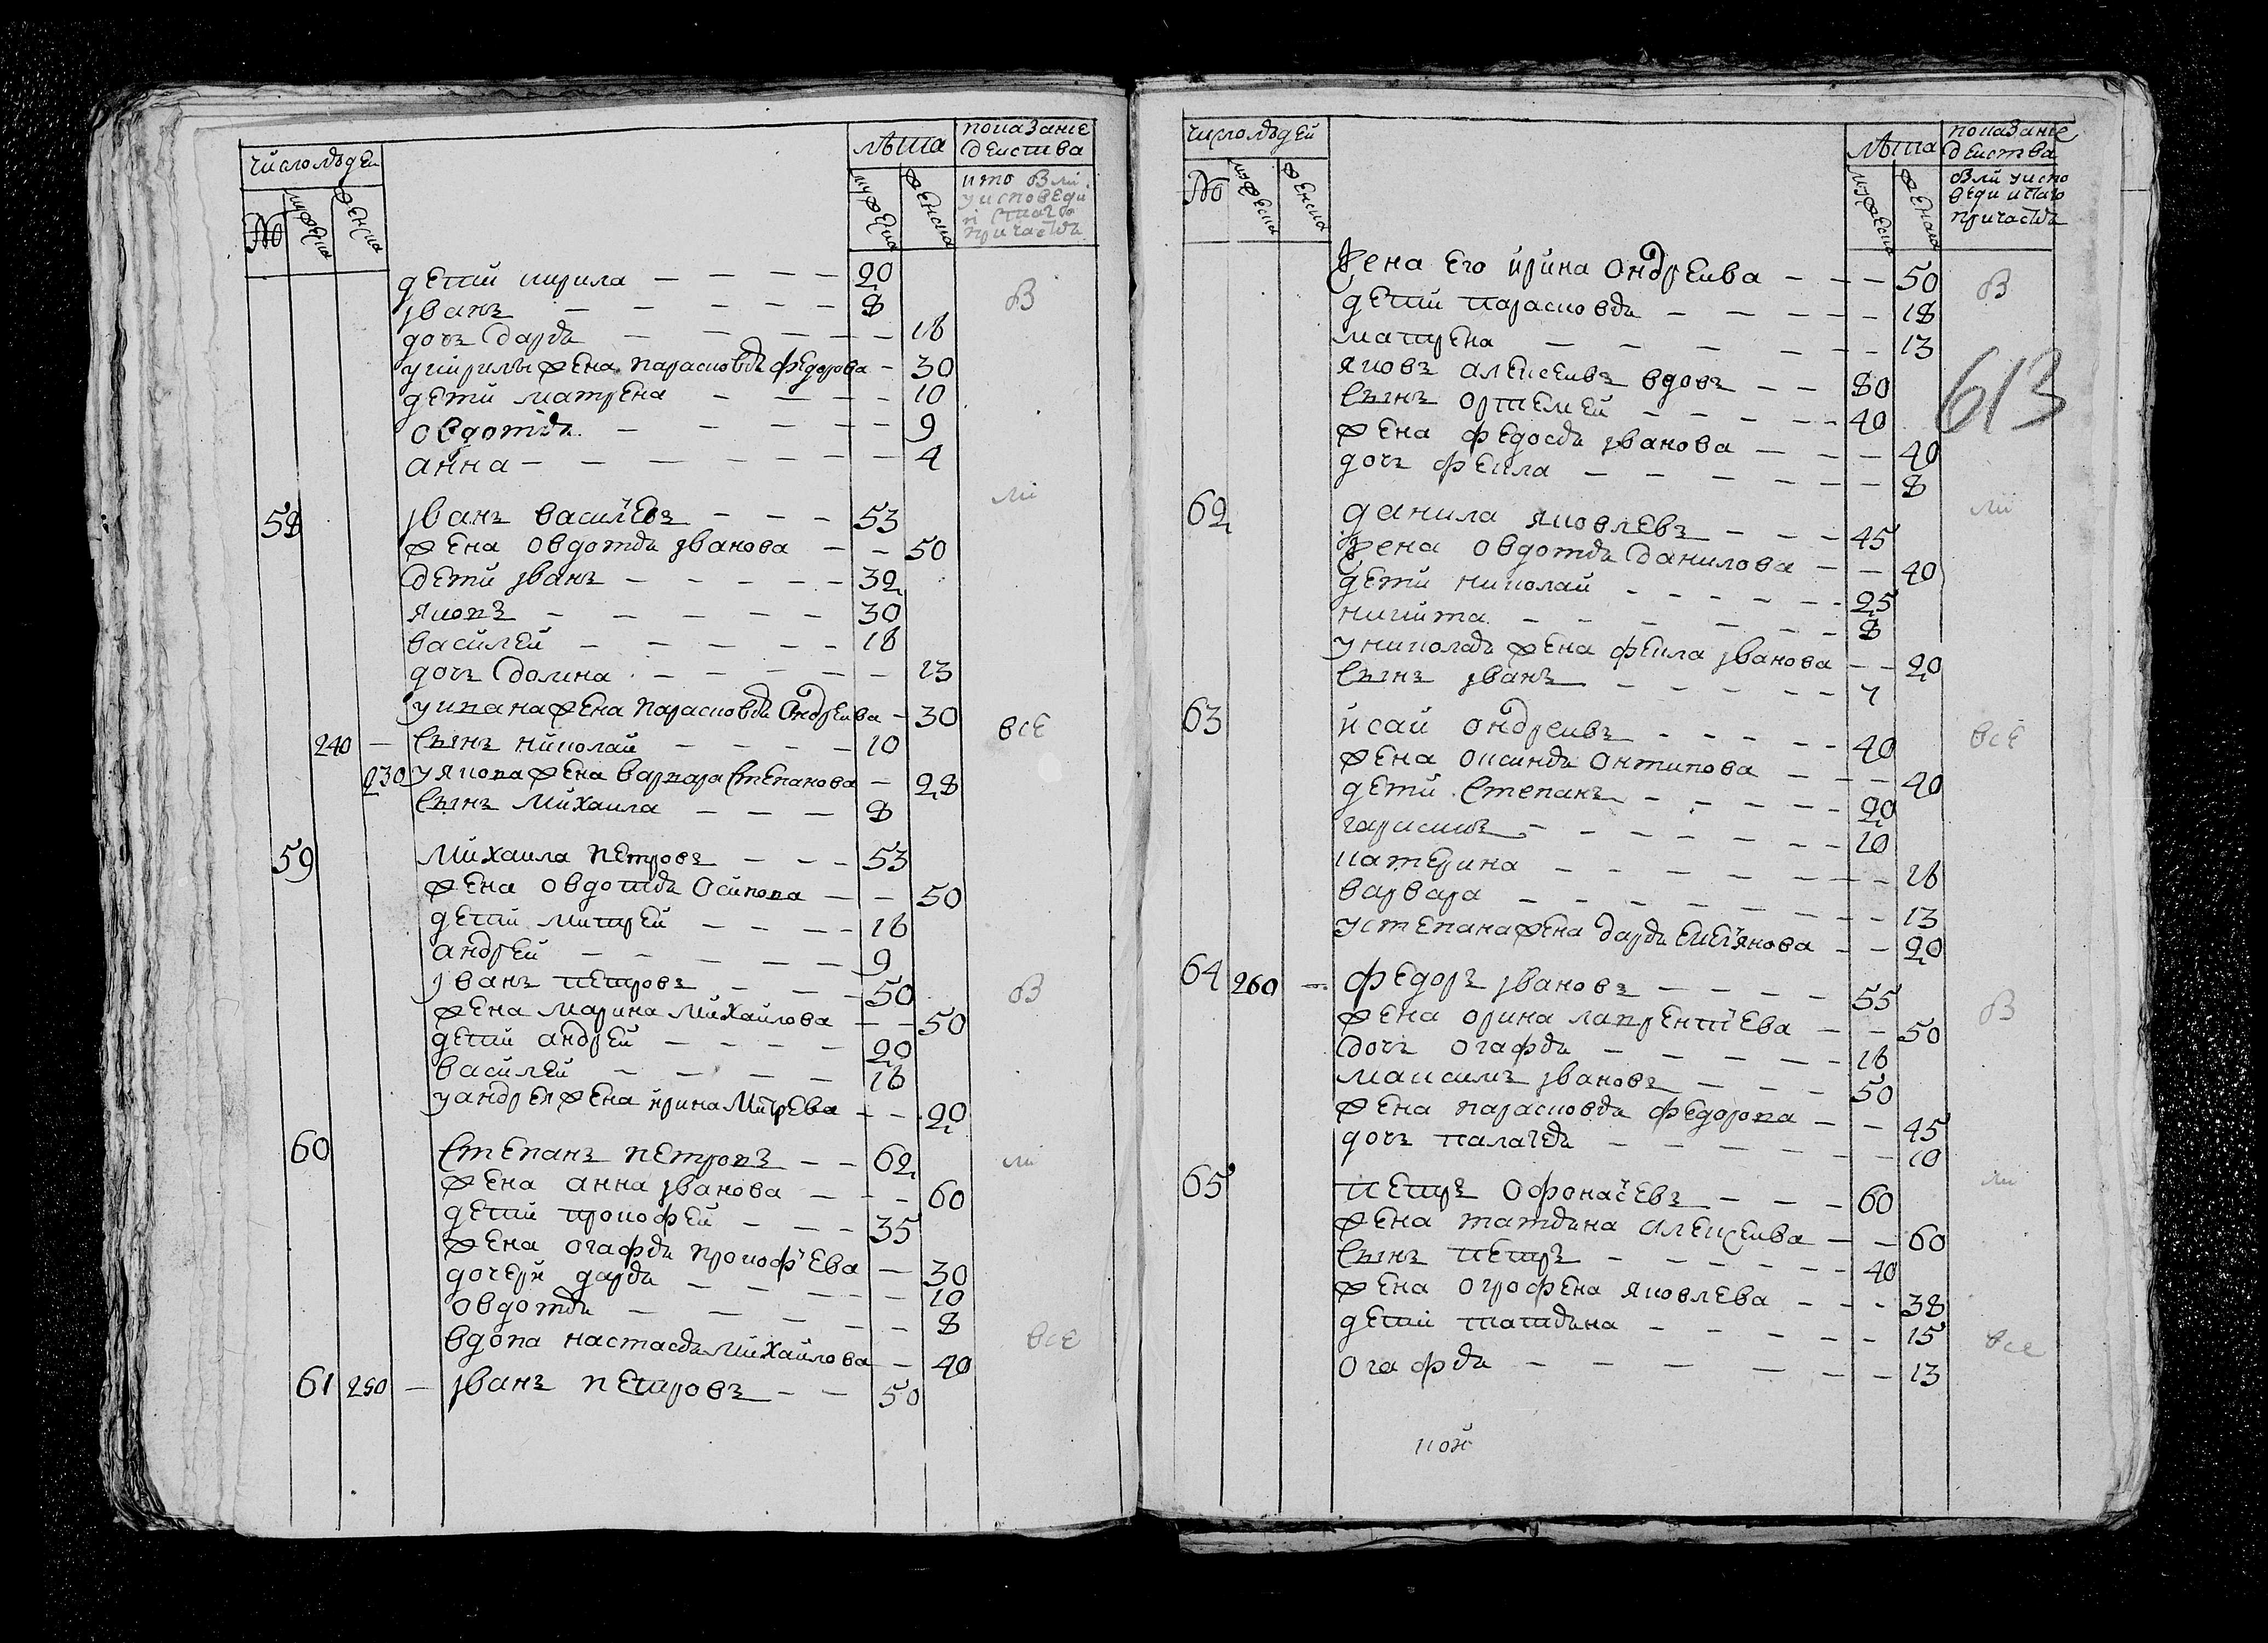 число людей
лѣта
показание действа
№ мужеска женска
мужеска женска
кто был у исповеди и стаго причастья
дети кирила — — — — 20
іванъ — — — — — 8
дочь дарья — — — — — 16
у кирилы жена парасковья федорова — 30
дети матрена — — — — 10
овдотья — — — — — 9
анна — — — — — — 4
58 іванъ василїевъ — — — 53
жена овдотья іванова — — 50
дети іванъ — — — — — 32
яковъ — — — — — 30
василей — — — — — 16
дочь долина — — — — — 13
жена парасковья ондреива — 30
240 — сынъ николай — — — — 10
230 у якова жена варвара степанова — 28
сынъ михаила — — — 8
59 михаила петровъ — — — 53
жена овдотья осипова — — 50
дети митрей — — — — 16
андрей — — — — — 9
іванъ петровъ — — — 50
жена марина михайлова — — 50
дети андрей — — — — 20
василей — — — — 16
у андрея жена ирина митрева — — 20
60 степанъ петровъ — — 62
жена анна іванова — — — 60
дети прокофей — — — 35
жена огафья прокофїева — — 30
дочери дарья — — — — — 10
овдотья — — — — — 8
вдова настасья михайлова — — 40
61 250 — іванъ петровъ — — 50
В
ли
все
В
ли
все
число людей
лѣта
показание действа
№ мужеска женска
мужеска женска
были у исповеди и стаго причастья
613
жена его ирина ондреива — — — 50
дети парасковья — — — — — 18
матрена — — — — — — 13
яковъ алексеивъ вдовъ — — 80
сынъ ортемей — — — — — 40
жена федосья іванова — — — 40
дочь фекла — — — — — — 8
62 данила яковлевъ — — — 45
жена овдотья данилова — — 40
дети николай — — — — — — 25
никита — — — — — — 8
у николая жена фекла іванова — — 20
сынъ іванъ — — — — — — 4
63 исай ондреивъ — — — — — 40
жена оксинья онтипова — — — 40
дети степанъ — — — — — — 20
гарасимъ — — — — — — — 10
катерина — — — — — — — 16
варвара — — — — — — — 13
у степана жена дарья емелїянова — — 20
64 260 — федоръ івановъ — — — — 55
жена орина лаврентїева — — 50
дочь огафья — — — — — 16
максимъ івановъ — — — — 50
жена парасковья федорова — — 45
дочь палагея — — — — — — 10
65 петръ офонасїевъ — — — 60
жена татьяна алексеива — — 60
сынъ петръ — — — — — — 40
жена огрофена яковлева — — — 38
дети татьяна — — — — — 15
огафья — — — — — — 13
В
ли
все
В
ли
все